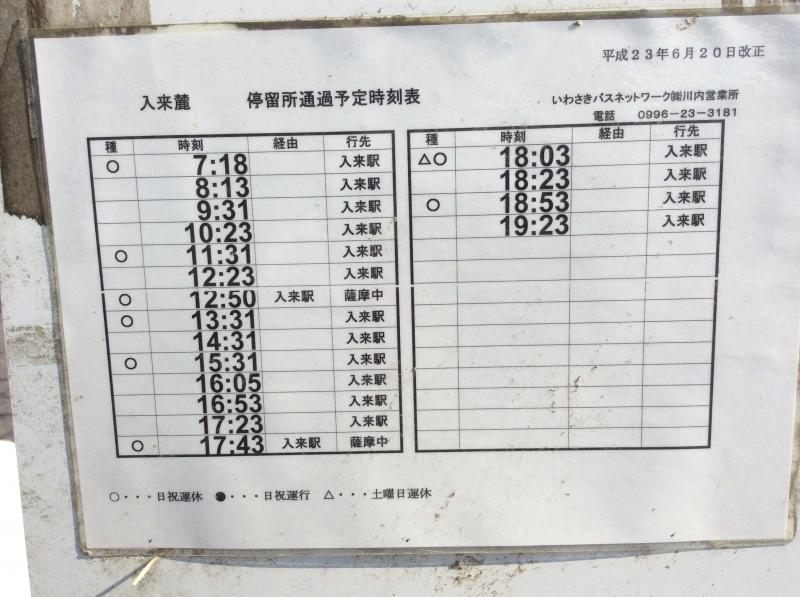 平成23年6月20日改正
入来麓 停留所通過予定時刻表 いわさきバスネットワーク㈱川内営業所
電話 0996-23-3181
種 時刻 経由 行先
○ 7:18 入来駅
8:13 入来駅
9:31 入来駅
10:23 入来駅
○ 11:31 入来駅
12:23 入来駅
○ 12:50 入来駅 薩摩中
○ 13:31 入来駅
14:31 入来駅
○ 15:31 入来駅
16:05 入来駅
16:53 入来駅
17:23 入来駅
○ 17:43 入来駅 薩摩中
種 時刻 経由 行先
△○ 18:03 入来駅
18:23 入来駅
○ 18:53 入来駅
19:23 入来駅
○・・・日祝運休 ●・・・日祝運行 △・・・土曜日運休